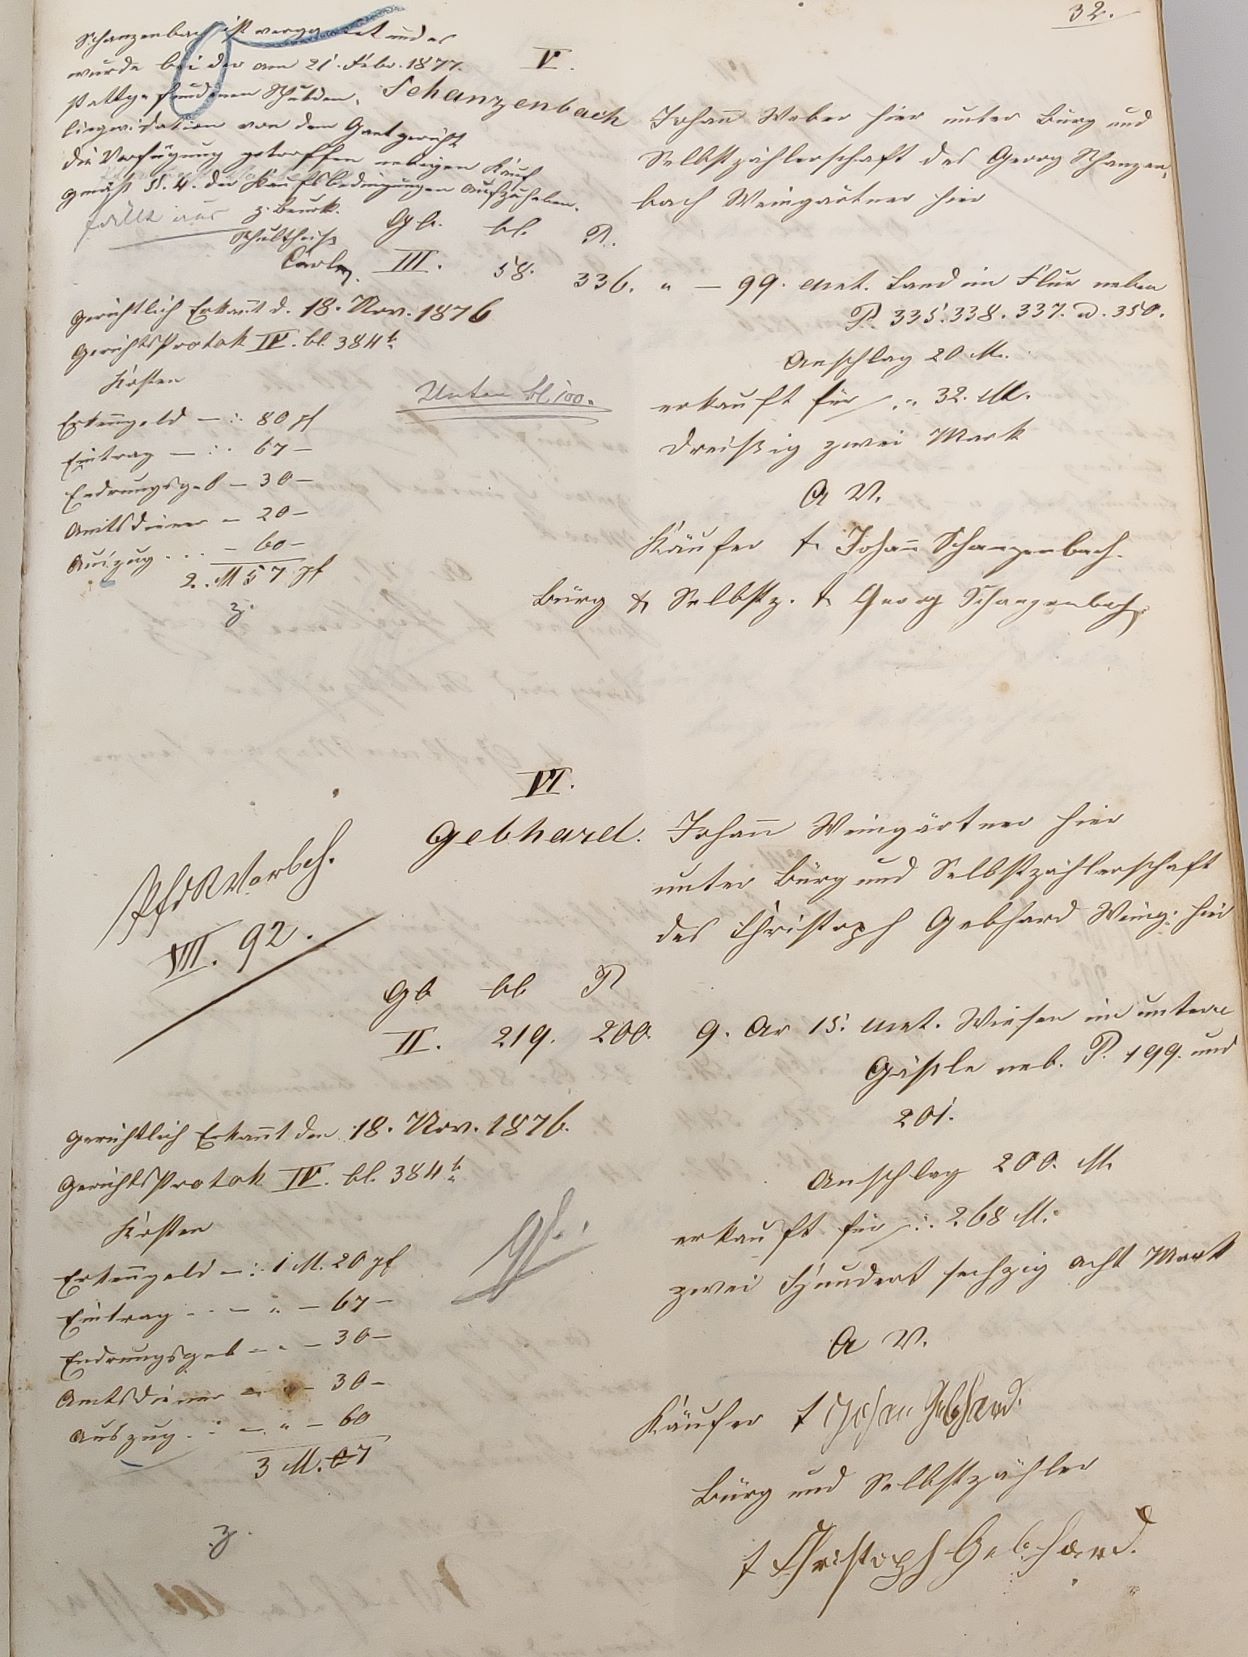 32.
Schanzenbach ist vergantet und es
wurde bei der am 21. Febr. 1877.
stattgefundenen Schulden-
liquidation von dem Gantgericht
die Verfügung getroffen nebigen Kauf
gemäß §. 4. der Kaufsbedingungen aufzuheben.
fällt aus z. Beurk.
Schultheiß
V.
Schanzenbach
Johann Weber hier unter Bürg und
Selbstzahlerschaft des Georg Schanzen-
bach Weingärtner hier
Gb. bl. P.
III. 58. 336. " — 99. Met. Land im Flur neben
P. 335. 338. 337. u. 350.
Anschlag 20 M.
erkauft für ./. 32. M.
dreißig zwei Mark
A V.
Käufer t. Johann Schanzenbach.
Bürg & Selbstz. t. Georg Schanzenbach.
Gerichtlich Erkannt d. 18. Nov. 1876
GerichtsProtok IV. bl. 384 b.
Kosten
Erkenngeld — : 80 pf
Eintrag — : 67 —
Endrungsgeb — 30 —
Amtsdiener — 20 —
Auszug . . . — 60 —
2. M 57 pf
z.
Unten bl. 100.
VI.
Gebhard.
Johann Weingärtner hier
unter Bürg und Selbstzahlerschaft
des Christoph Gebhard Weing: hier
PfdRVorbeh.
VIII. 92.
Gb bl P
II. 219. 200. 9. Ar 15. Met. Wiesen im untern
Gäßle neb. P. 199. und
201.
Anschlag 200. M.
erkauft für ./. 268 M.
zwei Hundert sechzig acht Mark
A V.
Käufer t Johann Gebhard.
Bürg und Selbstzahler
t Christoph Gebhard.
Gerichtlich Erkannt den 18. Nov. 1876.
GerichtsProtok IV. bl. 384 b.
Kosten
Erkenngeld — : 1 M. 20 pf
Eintrag . . — " — 67 —
Endrungsgeb — " — 30 —
Amtsdiener — " — 30 —
Auszug . : — " — 60
3 M. 07
z.